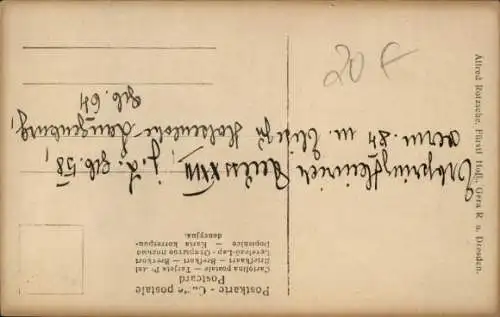 Postkarte - Carte postale
Postcard
Cartolina postale — Tarjeta Postal
Briefkaart — Brefkort — Brevkort
Levelező-Lap - Открытое письмо
Dopisnice — Karta korrespon-
dencyjna.
Erbprinz Heinrich Reuss XXVII j. L. geb. 58,
verm. 84 m. Elise zu Hohenlohe-Langenburg,
geb. 64
20 €
Alfred Rotzsche, Fürstl. Hofl., Gera R. u. Dresden.